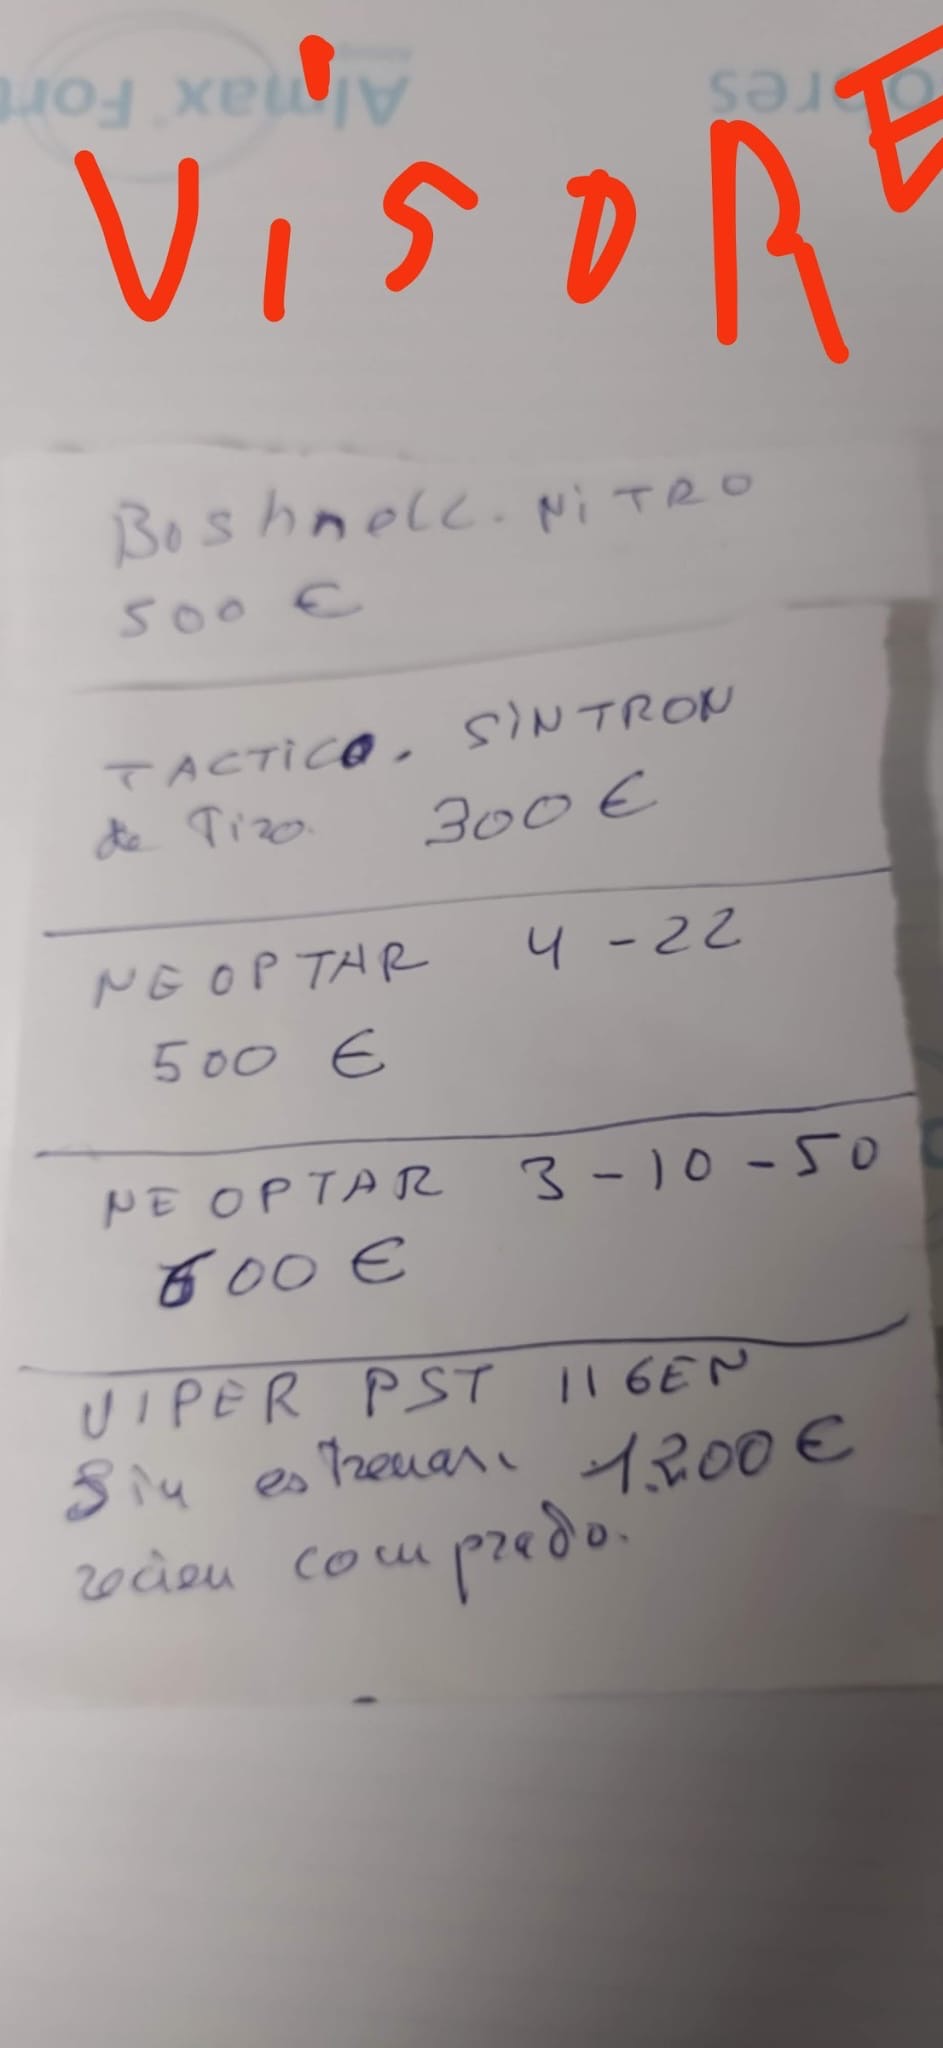 Almax Forte
VISORE
Boshnell. NiTRO
500 €
TACTICO. SINTRON
de Tiro. 300 €
NEOPTAR 4-22
500 €
NEOPTAR 3-10-50
600 €
VIPER PST II GEN
Sin estrenar. 1.200 €
recien comprado.